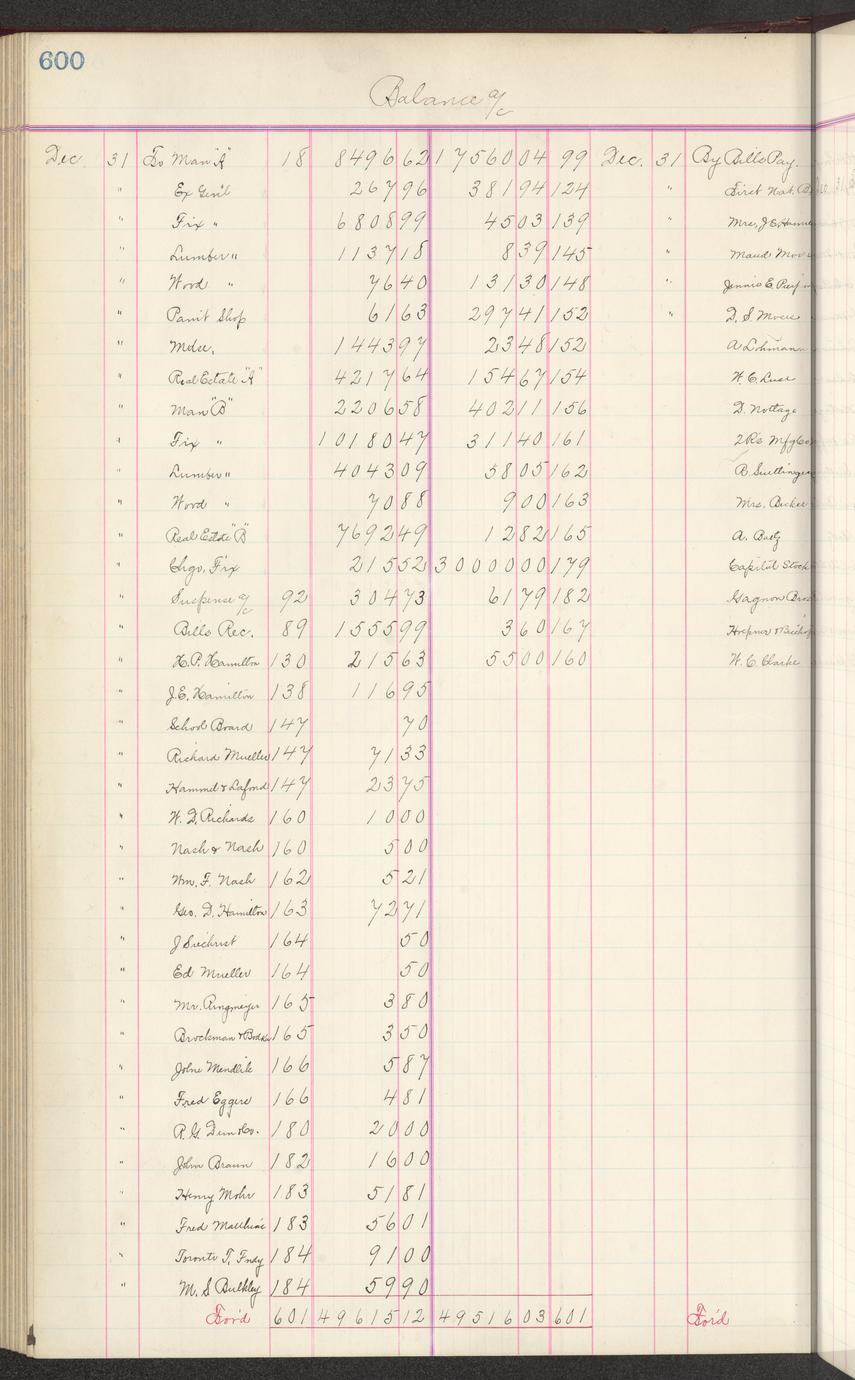 600
Balance a/c
Dec. 31 To Man "A" 18 8496 62 17560 04 99 Dec. 31 By Bills Pay.
" Ex Gen'l 267 96 381 94 124 " First Nat.
" Fix " 6808 99 45 03 139 " Mrs. J. E.
" Lumber " 1137 18 8 39 145 " Maud
" Wood " 76 40 131 30 148 " Jennie E.
" Paint Shop 61 63 297 41 152 " D. S.
" Mdse. 1443 97 23 48 152 A Lohmann
" Real Estate "A" 4217 64 154 67 154 W. C.
" Man "B" 2206 58 402 11 156 D. Nottage
" Fix " 10180 47 311 40 161 2 Rs Mfg Co
" Lumber " 4043 09 58 05 162
" Wood " 70 88 9 00 163 Mrs. Bicker
" Real Estate "B" 7692 49 12 82 165 A.
" Chgo. Fix 215 52 30000 00 179 Capital Stock
" Suspense a/c 92 304 73 61 79 182 Gagnon Bros
" Bills Rec. 89 1555 99 3 60 167
" H. P. Hamilton 130 215 63 55 00 160 W. C. Clarke
" J. E. Hamilton 138 116 95
" School Board 147 70
" Richard Mueller 147 71 33
" Hammel & Lafond 147 23 75
" W. D. Richards 160 10 00
" Nash & Nash 160 5 00
" Wm. F. Nash 162 5 21
" Geo. D. Hamilton 163 72 71
" J Siechrist 164 50
" Ed Mueller 164 50
" Mr. Ringmeyer 165 3 80
" Brockman & 165 3 50
" John Mendlik 166 5 87
" Fred Eggers 166 4 81
" R. G. Dun & Co. 180 20 00
" John Braun 182 16 00
" Henry Mohr 183 51 81
" Fred 183 56 01
" Toronto T. Fndy 184 91 00
" M. S Bulkley 184 59 90
For'd 601 49615 12 49516 03 601 For'd